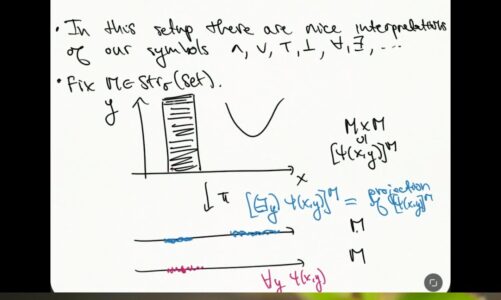 • In this setup there are nice interpretations
of our symbols ∧, ∨, ⊤, ⊥, ∀, ∃, ...
• Fix M ∈ Str_σ(Set).
y
M×M
∪I
[ψ(x,y)]^M
x
↓ π
[(∃y) ψ(x,y)]^M = projection
of [ψ(x,y)]^M
M
M
∀y ψ(x,y)